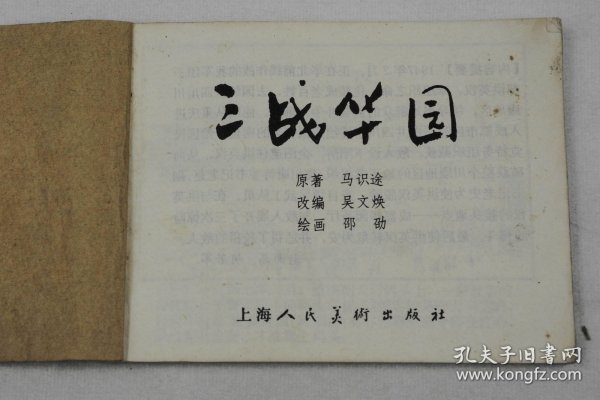 三战华园
原著 马识途
改编 吴文焕
绘画 邵劭
上海人民美術出版社
孔夫子旧书网
www.kongfz.com